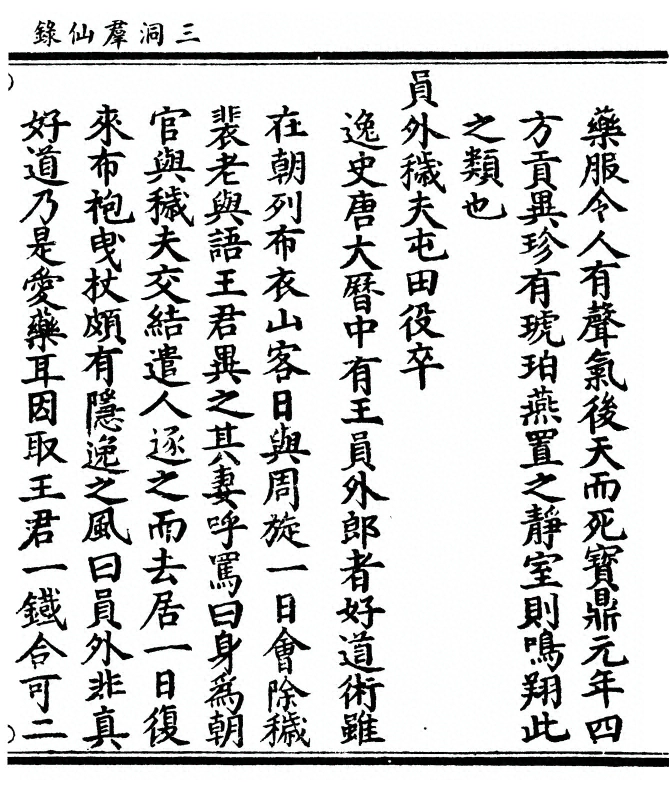 三洞羣仙錄
藥服令人有聲氣後天而死寶鼎元年四
方貢異珍有琥珀燕置之靜室則鳴翔此
之類也
員外穢夫屯田役卒
逸史唐大曆中有王員外郎者好道術雖
在朝列布衣山客日與周旋一日會除穢
裴老與語王君異之其妻呼罵曰身爲朝
官與穢夫交結遣人逐之而去居一日復
來布袍曳杖頗有隱逸之風曰員外非真
好道乃是愛藥耳因取王君一鐵合可二